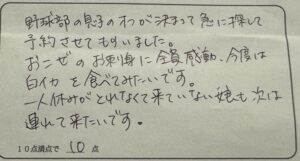 野球部の息子のオフが決まって急に探して
予約させてもらいました。
おこぜのお刺身に全員感動、今度は
白イカを食べてみたいです。
一人休みがとれなくて来ていない娘も次は
連れて来たいです。
10点満点で 10 点